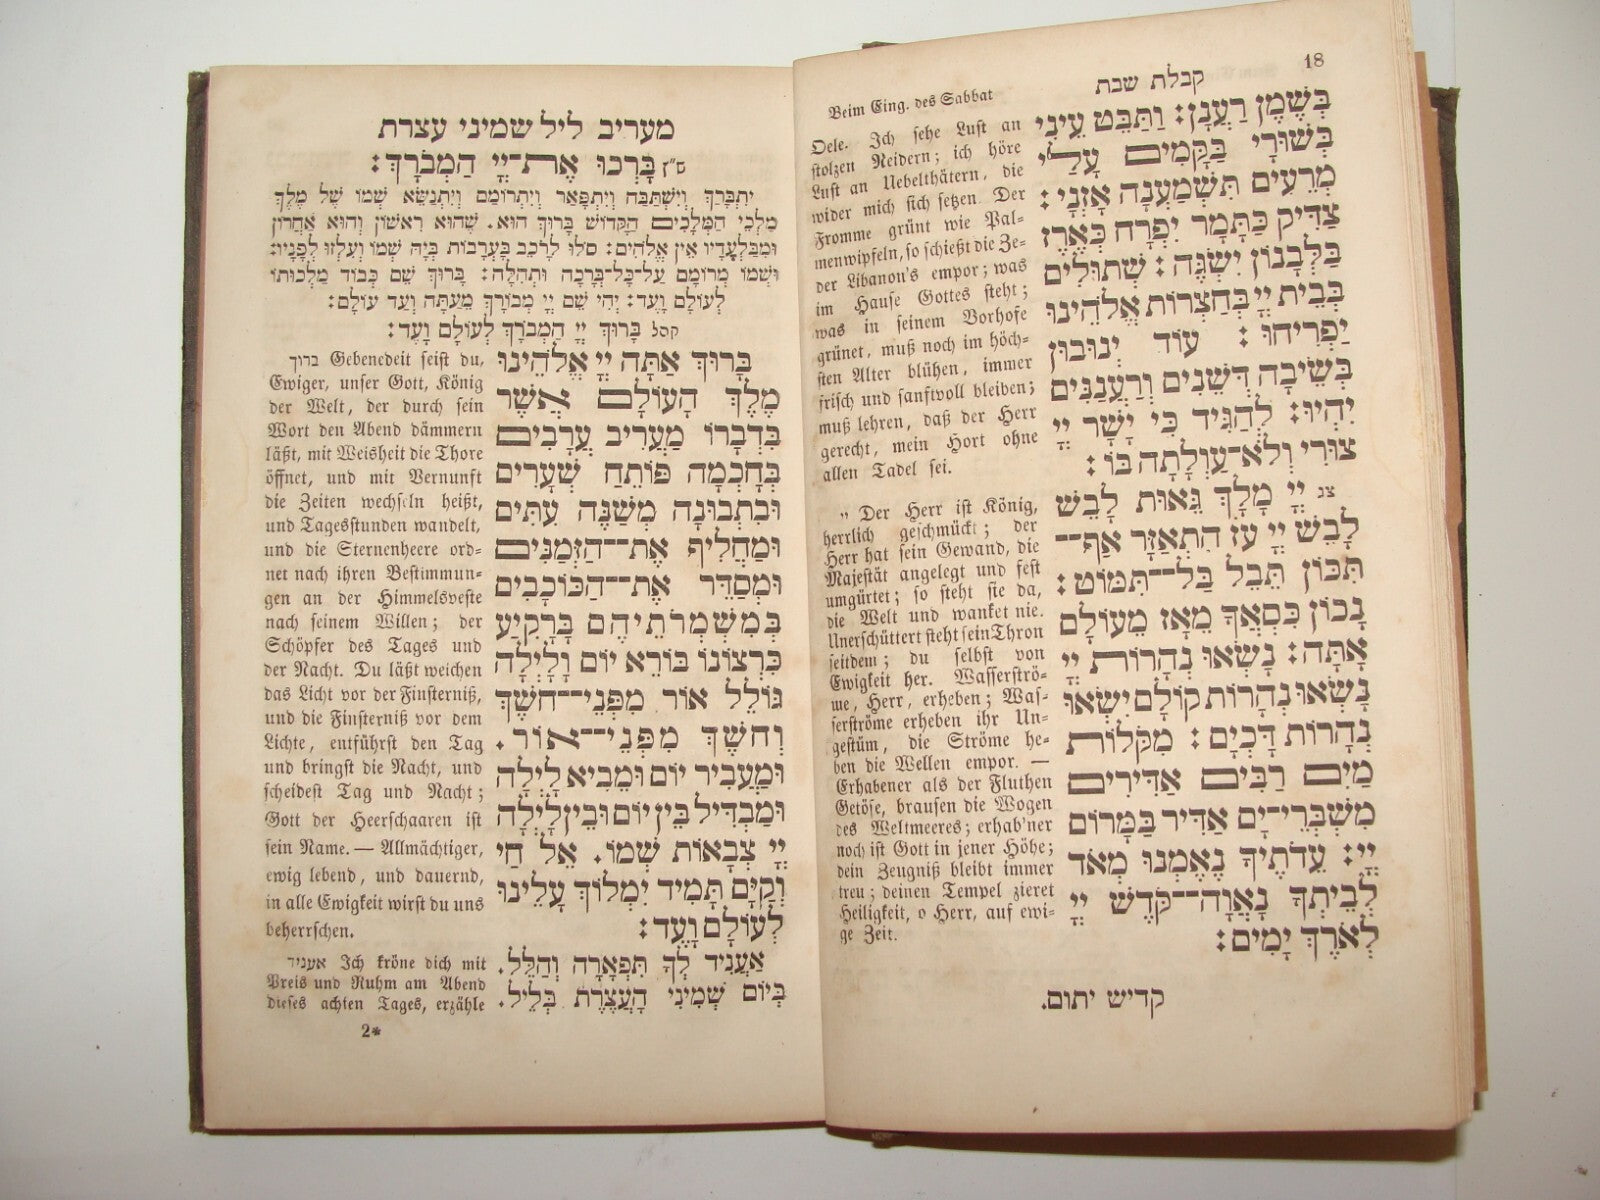 18
קבלת שבת
Beim Eing. des Sabbat
בְּשֶׁמֶן רַעֲנָן: וַתַּבֵּט עֵינִי
בְּשׁוּרָי בַּקָּמִים עָלַי
מְרֵעִים תִּשְׁמַעְנָה אָזְנָי:
צַדִּיק כַּתָּמָר יִפְרָח כְּאֶרֶז
בַּלְּבָנוֹן יִשְׂגֶּה: שְׁתוּלִים
בְּבֵית יְיָ בְּחַצְרוֹת אֱלֹהֵינוּ
יַפְרִיחוּ: עוֹד יְנוּבוּן
בְּשֵׂיבָה דְּשֵׁנִים וְרַעֲנַנִּים
יִהְיוּ: לְהַגִּיד כִּי יָשָׁר יְיָ
צוּרִי וְלֹא־עַוְלָתָה בּוֹ:
צג יְיָ מָלָךְ גֵּאוּת לָבֵשׁ
לָבֵשׁ יְיָ עֹז הִתְאַזָּר אַף־
תִּכּוֹן תֵּבֵל בַּל־תִּמּוֹט:
נָכוֹן כִּסְאֲךָ מֵאָז מֵעוֹלָם
אָתָּה: נָשְׂאוּ נְהָרוֹת יְיָ
נָשְׂאוּ נְהָרוֹת קוֹלָם יִשְׂאוּ
נְהָרוֹת דָּכְיָם: מִקֹּלוֹת
מַיִם רַבִּים אַדִּירִים
מִשְׁבְּרֵי־יָם אַדִּיר בַּמָּרוֹם
יְיָ: עֵדֹתֶיךָ נֶאֶמְנוּ מְאֹד
לְבֵיתְךָ נָאֲוָה־קֹּדֶשׁ יְיָ
לְאֹרֶךְ יָמִים:
Oele. Ich sehe Lust an
stolzen Neidern; ich höre
Lust an Uebelthätern, die
wider mich sich setzen. Der
Fromme grünt wie Pal-
menwipfeln, so schießt die Ze-
der Libanon's empor; was
im Hause Gottes steht;
was in seinem Vorhofe
grünet, muß noch im höch-
sten Alter blühen, immer
frisch und saftvoll bleiben;
muß lehren, daß der Herr
gerecht, mein Hort ohne
allen Tadel sei.
יי Der Herr ist König,
herrlich geschmückt; der
Herr hat sein Gewand, die
Majestät angelegt und fest
umgürtet; so steht sie da,
die Welt und wanket nie.
Unerschüttert steht sein Thron
seitdem; du selbst von
Ewigkeit her. Wasserströ-
me, Herr, erheben; Was-
serströme erheben ihr Un-
gestüm, die Ströme he-
ben die Wellen empor. —
Erhabener als der Fluthen
Getöse, brausen die Wogen
des Weltmeeres; erhab'ner
noch ist Gott in jener Höhe;
dein Zeugniß bleibt immer
treu; deinen Tempel zieret
Heiligkeit, o Herr, auf ewi-
ge Zeit.
קדיש יתום.
מעריב ליל שמיני עצרת
ס״ז בָּרְכוּ אֶת־יְיָ הַמְבֹרָךְ:
יִתְבָּרַךְ וְיִשְׁתַּבַּח וְיִתְפָּאַר וְיִתְרוֹמַם וְיִתְנַשֵּׂא שְׁמוֹ שֶׁל מֶלֶךְ
מַלְכֵי הַמְּלָכִים הַקָּדוֹשׁ בָּרוּךְ הוּא. שֶׁהוּא רִאשׁוֹן וְהוּא אַחֲרוֹן
וּמִבַּלְעָדָיו אֵין אֱלֹהִים: סֹלּוּ לָרֹכֵב בָּעֲרָבוֹת בְּיָהּ שְׁמוֹ וְעִלְזוּ לְפָנָיו:
וּשְׁמוֹ מְרוֹמָם עַל־כָּל־בְּרָכָה וּתְהִלָּה: בָּרוּךְ שֵׁם כְּבוֹד מַלְכוּתוֹ
לְעוֹלָם וָעֶד: יְהִי שֵׁם יְיָ מְבוֹרָךְ מֵעַתָּה וְעַד עוֹלָם:
קהל בָּרוּךְ יְיָ הַמְבֹרָךְ לְעוֹלָם וָעֶד:
בָּרוּךְ אַתָּה יְיָ אֱלֹהֵינוּ
מֶלֶךְ הָעוֹלָם אֲשֶׁר
בִּדְבָרוֹ מַעֲרִיב עֲרָבִים
בְּחָכְמָה פּוֹתֵחַ שְׁעָרִים
וּבִתְבוּנָה מְשַׁנֶּה עִתִּים
וּמַחֲלִיף אֶת־הַזְּמַנִּים
וּמְסַדֵּר אֶת־הַכּוֹכָבִים
בְּמִשְׁמְרֹתֵיהֶם בָּרָקִיעַ
כִּרְצוֹנוֹ בּוֹרֵא יוֹם וָלָיְלָה
גּוֹלֵל אוֹר מִפְּנֵי־חֹשֶׁךְ
וְחֹשֶׁךְ מִפְּנֵי־אוֹר.
וּמַעֲבִיר יוֹם וּמֵבִיא לָיְלָה
וּמַבְדִּיל בֵּין יוֹם וּבֵין לָיְלָה
יְיָ צְבָאוֹת שְׁמוֹ. אֵל חַי
וְקַיָּם תָּמִיד יִמְלוֹךְ עָלֵינוּ
לְעוֹלָם וָעֶד:
אַעֲנִיד לְךָ תִּפְאָרָה וְהַלֵּל.
בְּיוֹם שְׁמִינִי הָעֲצֶרֶת בְּלֵיל.
ברוך Gebenedeit seist du,
Ewiger, unser Gott, König
der Welt, der durch sein
Wort den Abend dämmern
läßt, mit Weisheit die Thore
öffnet, und mit Vernunft
die Zeiten wechseln heißt,
und Tagesstunden wandelt,
und die Sternenheere ord-
net nach ihren Bestimmun-
gen an der Himmelsveste
nach seinem Willen; der
Schöpfer des Tages und
der Nacht. Du läßt weichen
das Licht vor der Finsterniß,
und die Finsterniß vor dem
Lichte, entführst den Tag
und bringst die Nacht, und
scheidest Tag und Nacht;
Gott der Heerschaaren ist
sein Name. — Allmächtiger,
ewig lebend, und dauernd,
in alle Ewigkeit wirst du uns
beherrschen.
אעניד Ich kröne dich mit
Preis und Ruhm am Abend
dieses achten Tages, erzähle
2*